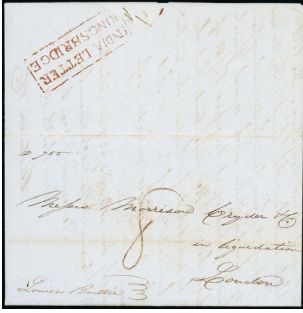 INDIA LETTER
KINGSBRIDGE
Messrs Morrison Cryder & Co
8
in liquidation
London
Louisa